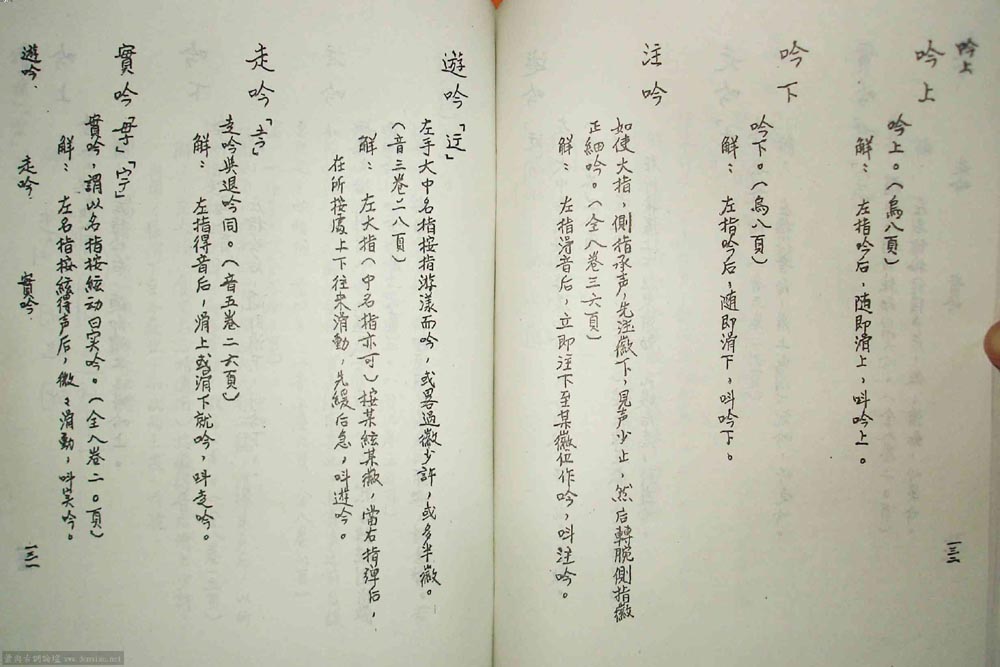 吟上
吟上
吟上。(烏八頁)
解：左指吟后，随即滑上，叫吟上。
吟下
吟下。(烏八頁)
解：左指吟后，随即滑下，叫吟下。
注吟
如使大指，側指承声，先注徽下，見声少止，然后轉腕側指徽
正細吟。(仝八卷三六頁)
解：左指得音后，立即注下至某徽位作吟，叫注吟。
一三一
遊吟「迂」
左手大中名指按指游漾而吟，或畧過徽少許，或多半徽。
(音三卷二八頁)
解：左大指(中名指亦可)按某絃某徽，當右指弹后，
在所按處上下往来滑動，先緩后急，叫遊吟。
走吟
走吟與退吟同。(音五卷二六頁)
解：左指得音后，滑上或滑下就吟，叫走吟。
實吟
實吟，謂以名指按絃动曰实吟。(仝八卷二〇頁)
解：左名指按絃得声后，微々滑動，叫实吟。
遊吟、走吟、實吟、
一三二
www.donniao.net